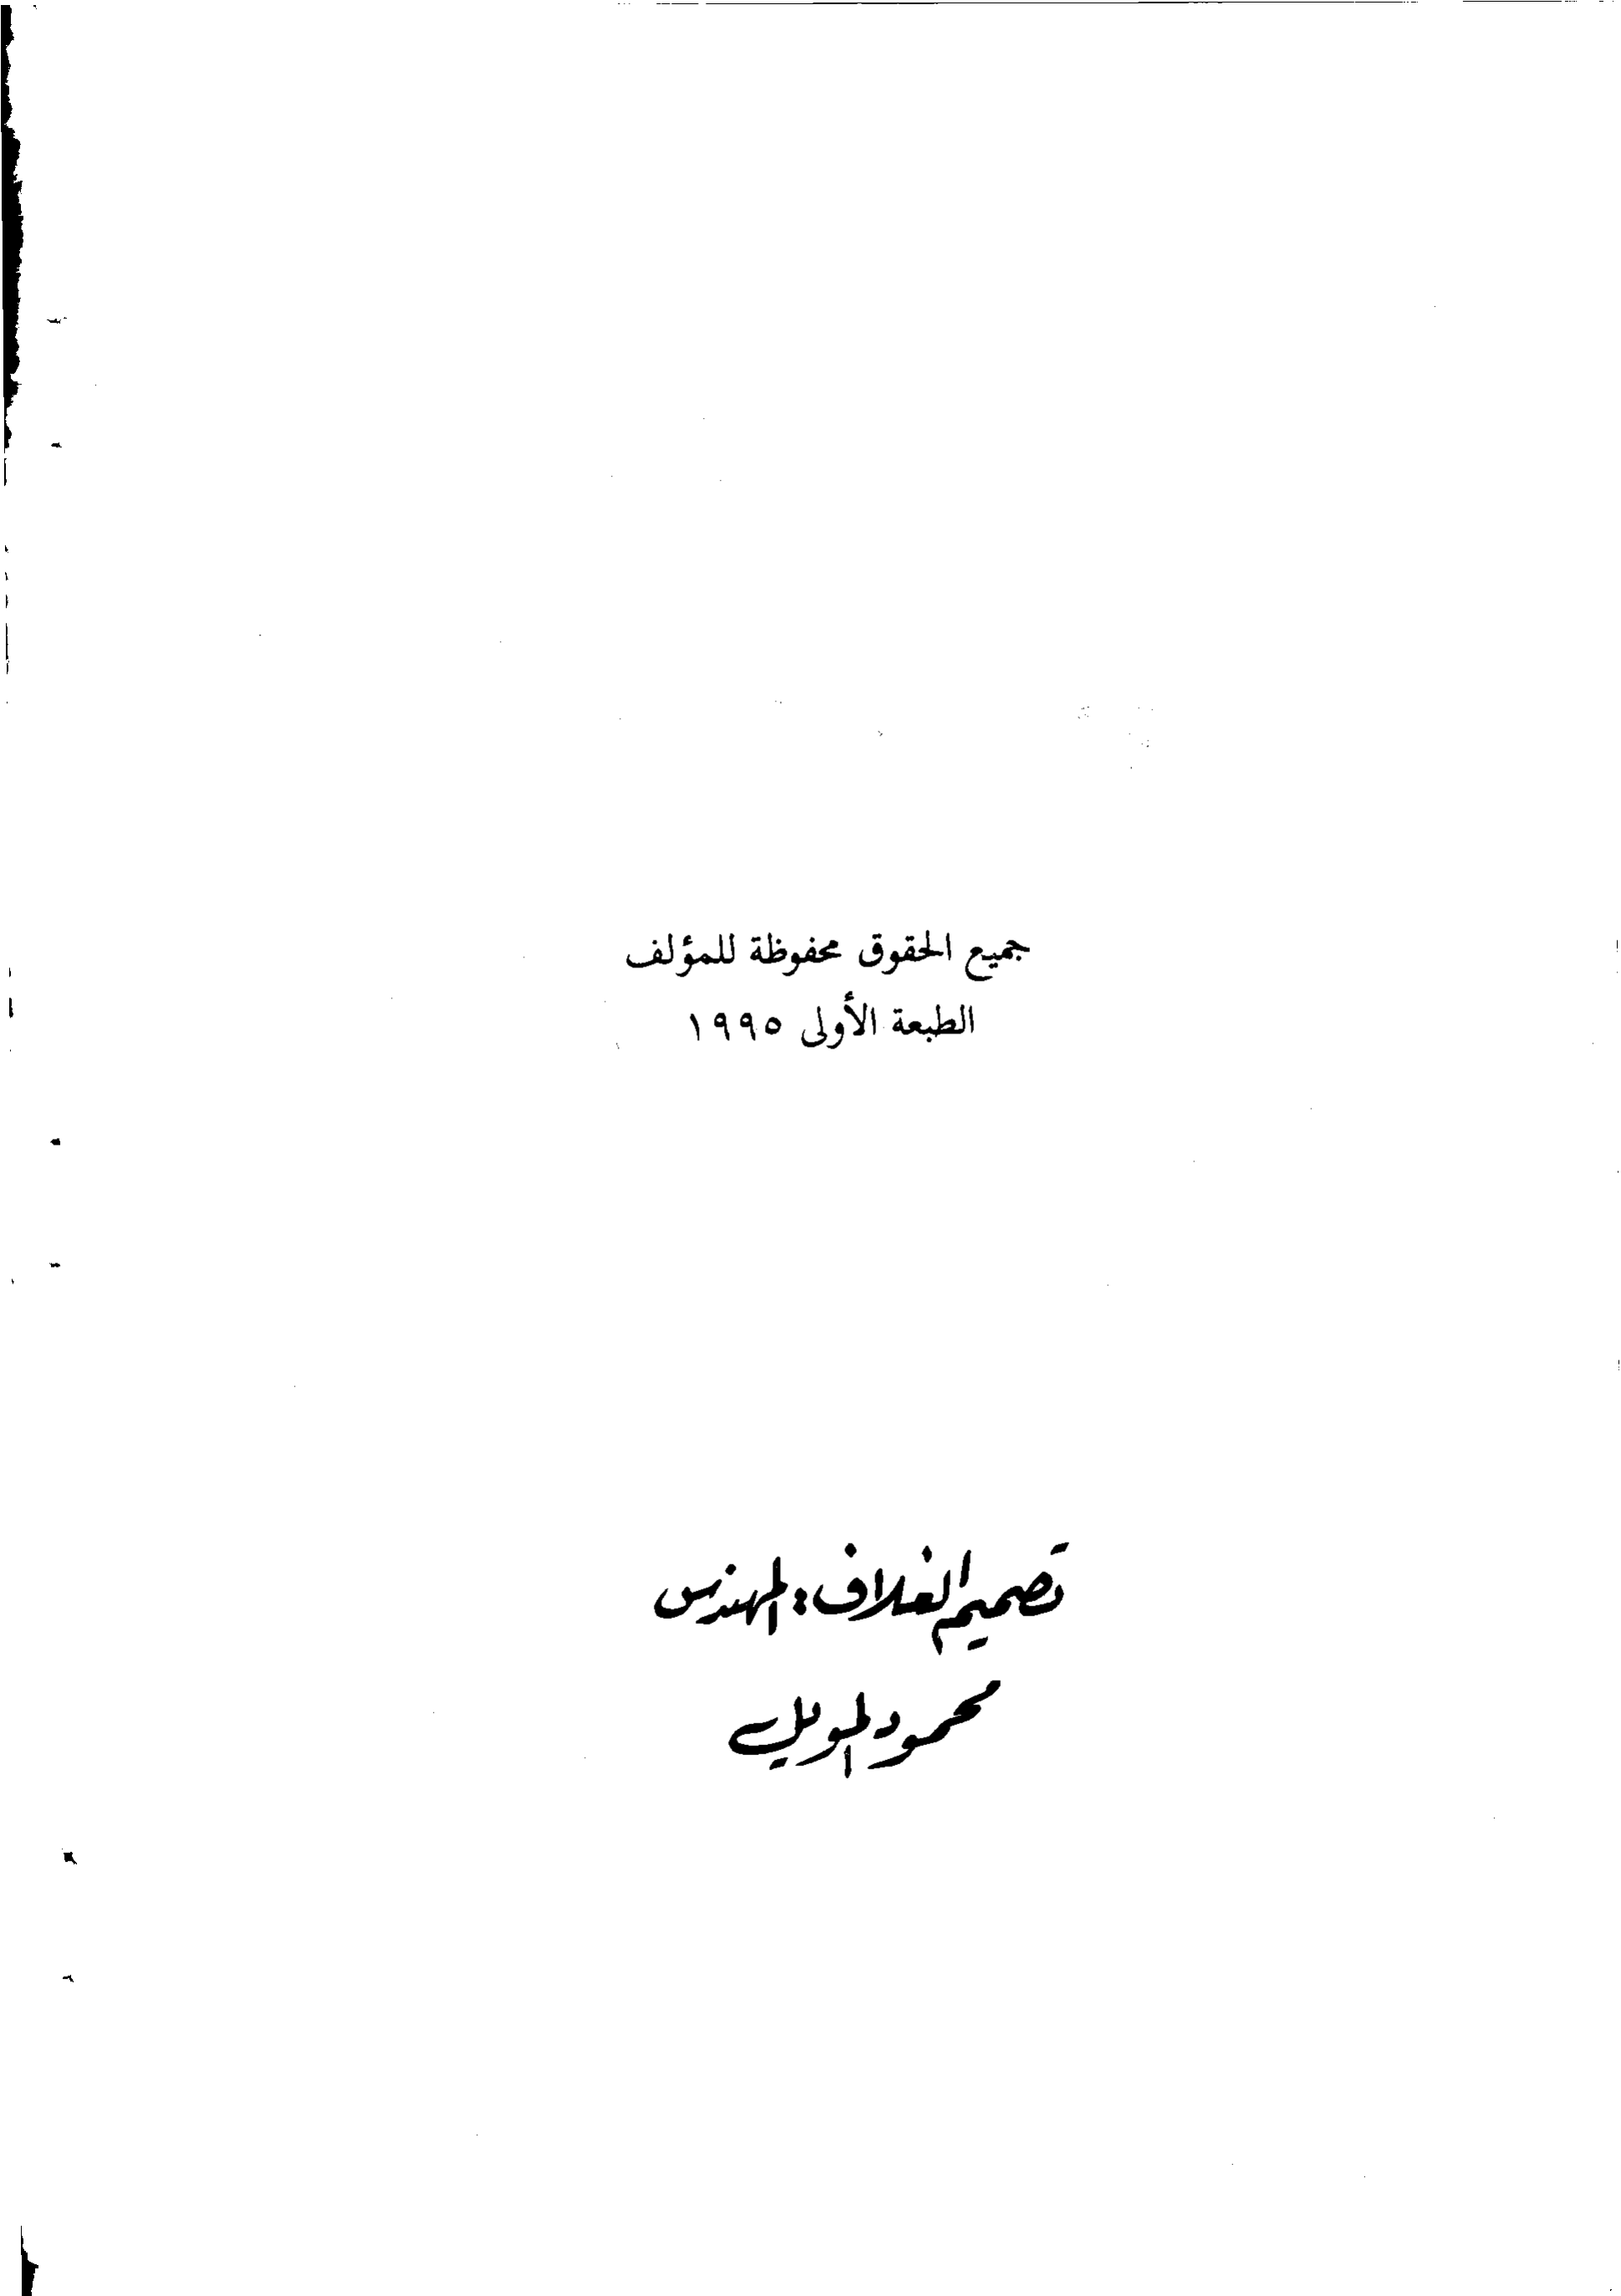 جميع الحقوق محفوظة للمؤلف
الطبعة الأولى ١٩٩٥
تصميم الغلاف : المهندس
محمود